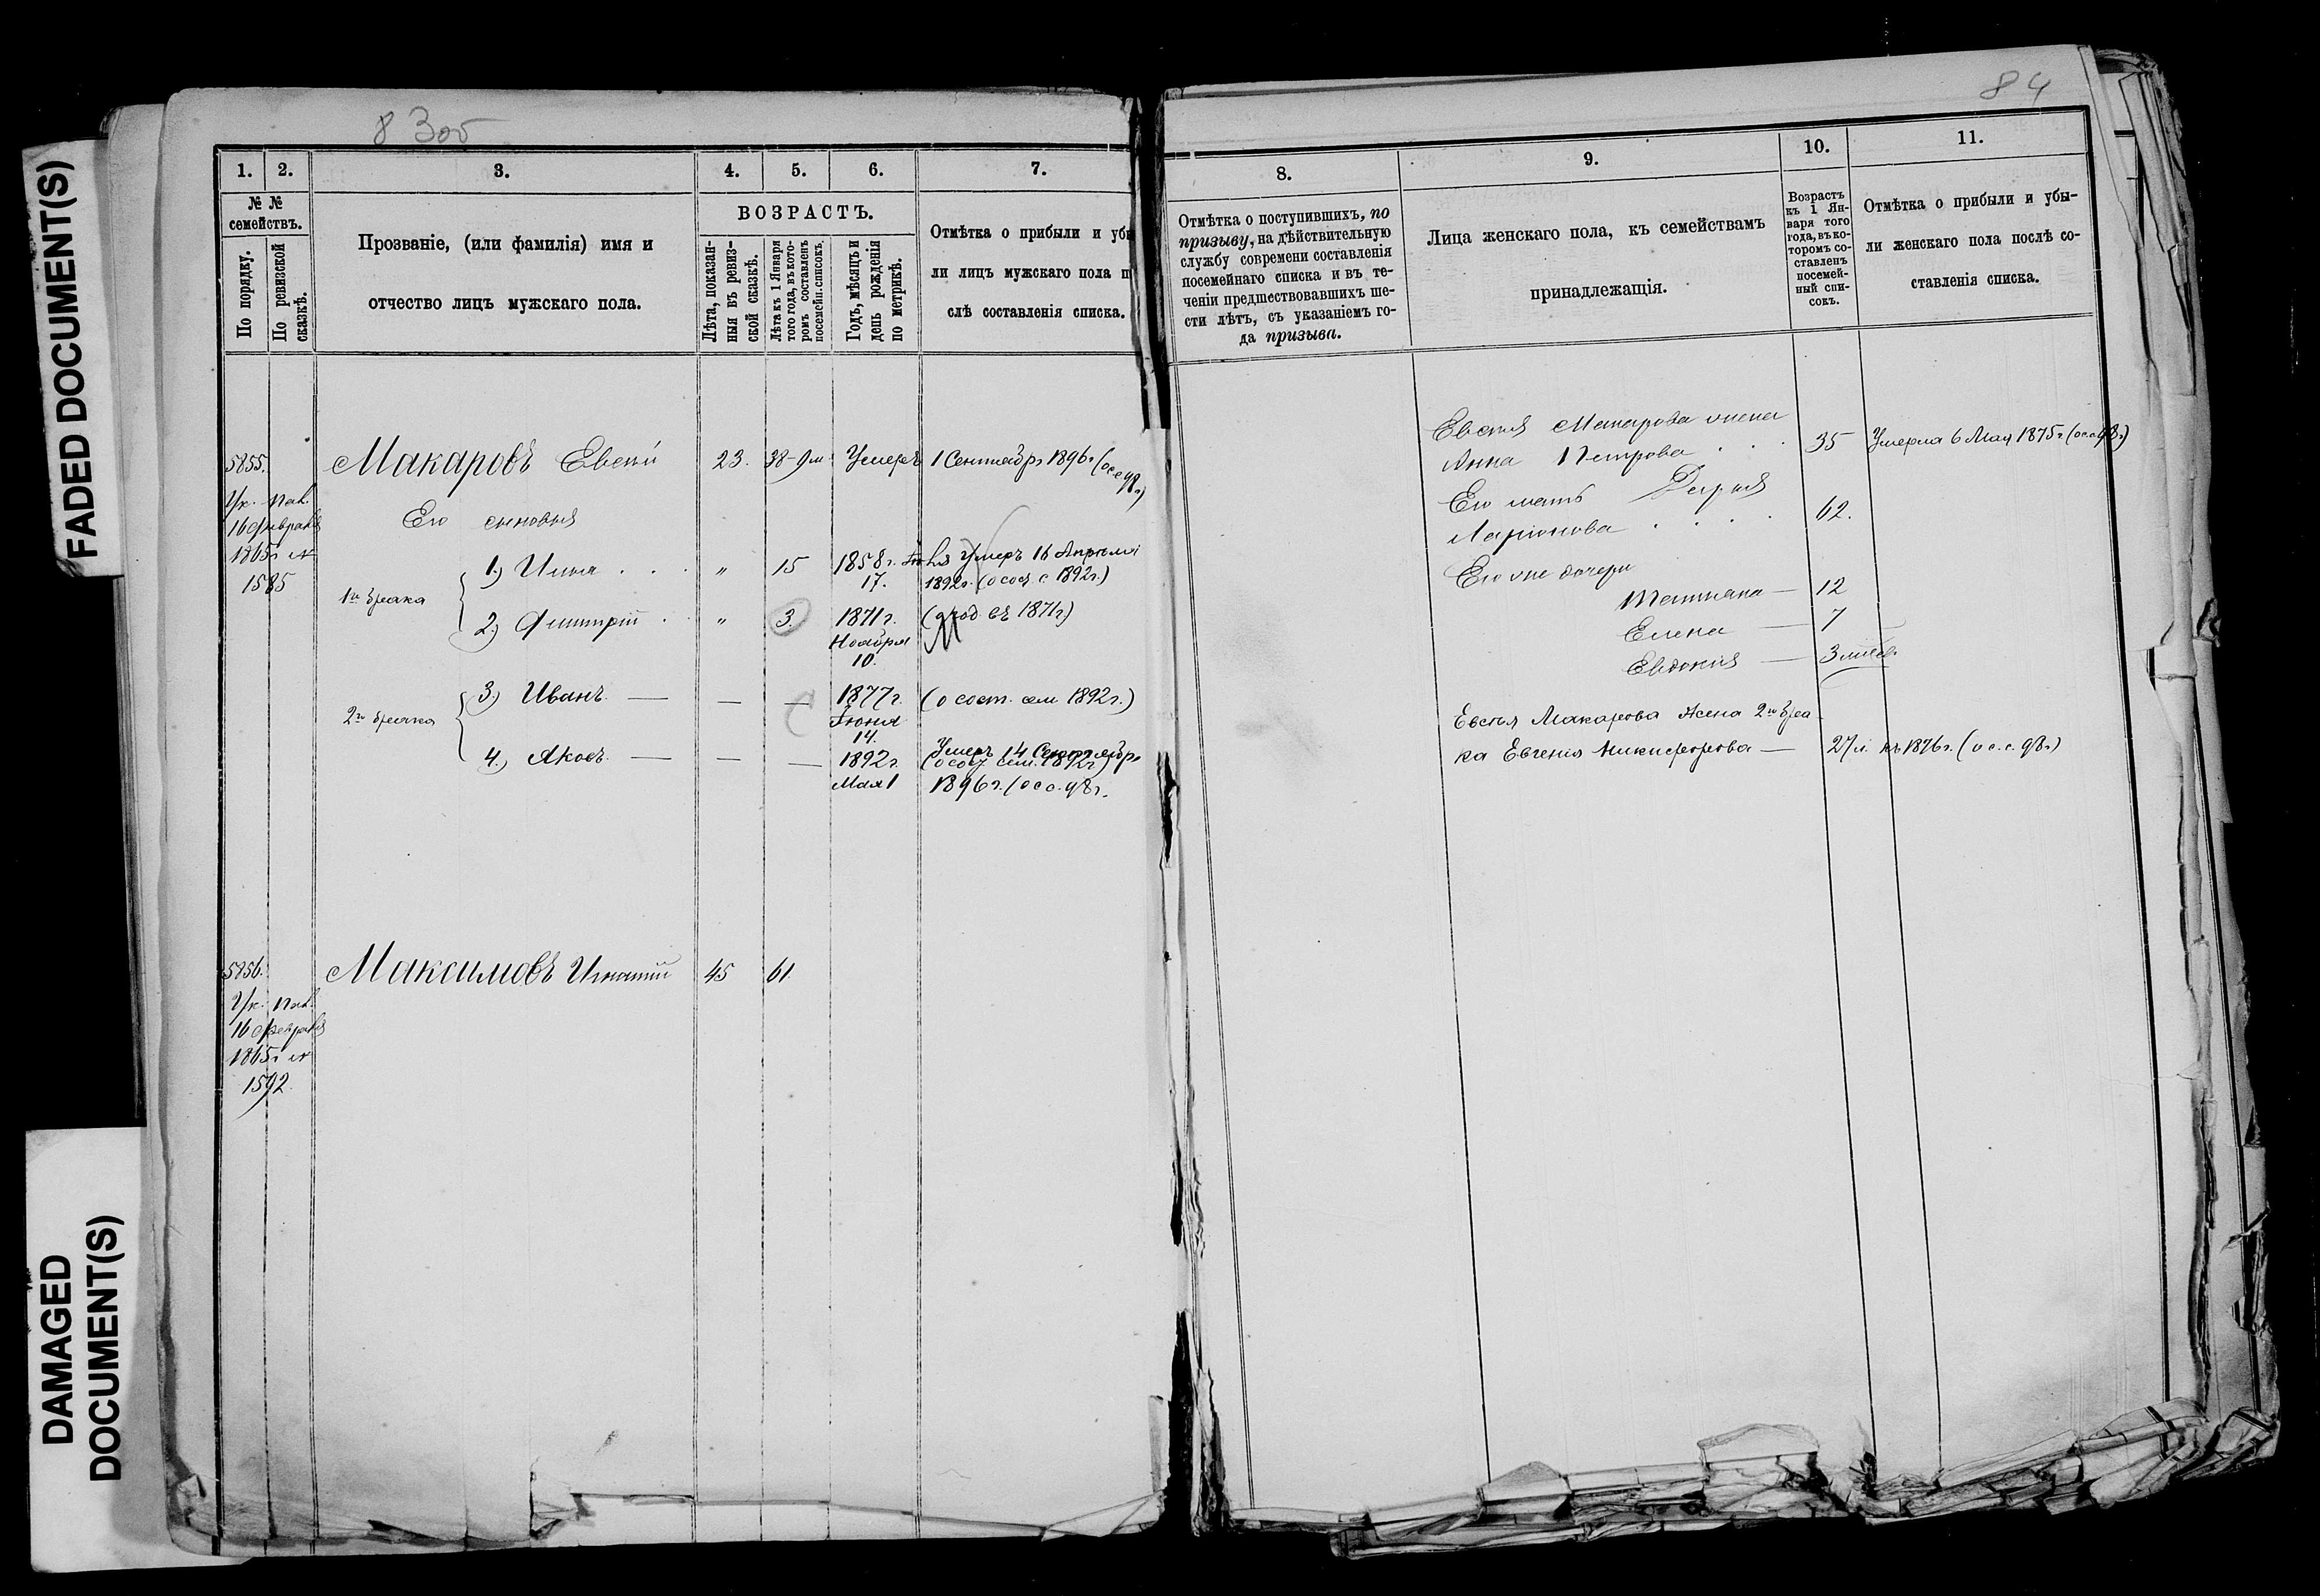 FADED DOCUMENT(S)
DAMAGED
DOCUMENT(S)
83об
1.
2.
3.
4.
5.
6.
7.
№ №
семействъ.
По порядку.
По ревизской
сказкѣ.
Прозваніе, (или фамилія) имя и
отчество лицъ мужскаго пола.
ВОЗРАСТЪ.
Лѣта, показан-
ныя въ ревиз-
ской сказкѣ.
Лѣта къ 1 Января
того года, въ кото-
ромъ составленъ
посемейн. списокъ.
Годъ, мѣсяцъ и
день рожденія
по метрикѣ.
Отмѣтка о прибыли и убы
ли лицъ мужскаго пола п
слѣ составленія списка.
5855.
Макаровъ Евсей
23.
38-9м.
Умеръ 1 Сентябр. 1896г. (о с с 98г)
Ук. Пал.
16 февраля
1865г №
1585
Его сыновья
1го брака
1.) Илья . . .
"
15
1858г. Іюля
17.
Умеръ 16 Апрѣля
1892г. (о сост. с 1892г.)
2.) Дмитрій .
"
3.
1871г.
Ноября
10.
(род въ 1871г)
2го брака
3.) Иванъ. —
—
—
1877г.
Іюня
14.
(о сост. сем 1892г.)
4.) Яковъ. —
—
—
1892г.
Мая 1
Умеръ 14 Сентябр.
(о сост. сем. 1892г)
1896г. (о с с. 98г.
5856.
Максимовъ Игнатій
45
61.
Ук. Пал.
16 февраля
1865г №
1592.
84
8.
9.
10.
11.
Отмѣтка о поступившихъ, по
призыву, на дѣйствительную
службу современи составленія
посемейнаго списка и въ те-
ченіи предшествовавшихъ ше-
сти лѣтъ, съ указаніемъ го-
да призыва.
Лица женскаго пола, къ семействамъ
принадлежащія.
Возрастъ
къ 1 Ян-
варя того
года, въ ко-
торомъ со-
ставленъ
посемей-
ный спи-
сокъ.
Отмѣтка о прибыли и убы-
ли женскаго пола послѣ со-
ставленія списка.
Евсея Макарова жена
Анна Петрова .
35
Умерла 6 Мая 1875г (о с с 98г.)
Его мать Дарья
Ларіонова . . . .
62.
Его же дочери
Татіана —
12
Елена —
7
Евдокія —
3 мѣсв.
Евсея Макарова Жена 2го бра
ка Евгенія Никифорова —
27л. къ 1876г. (о с. с. 98г)